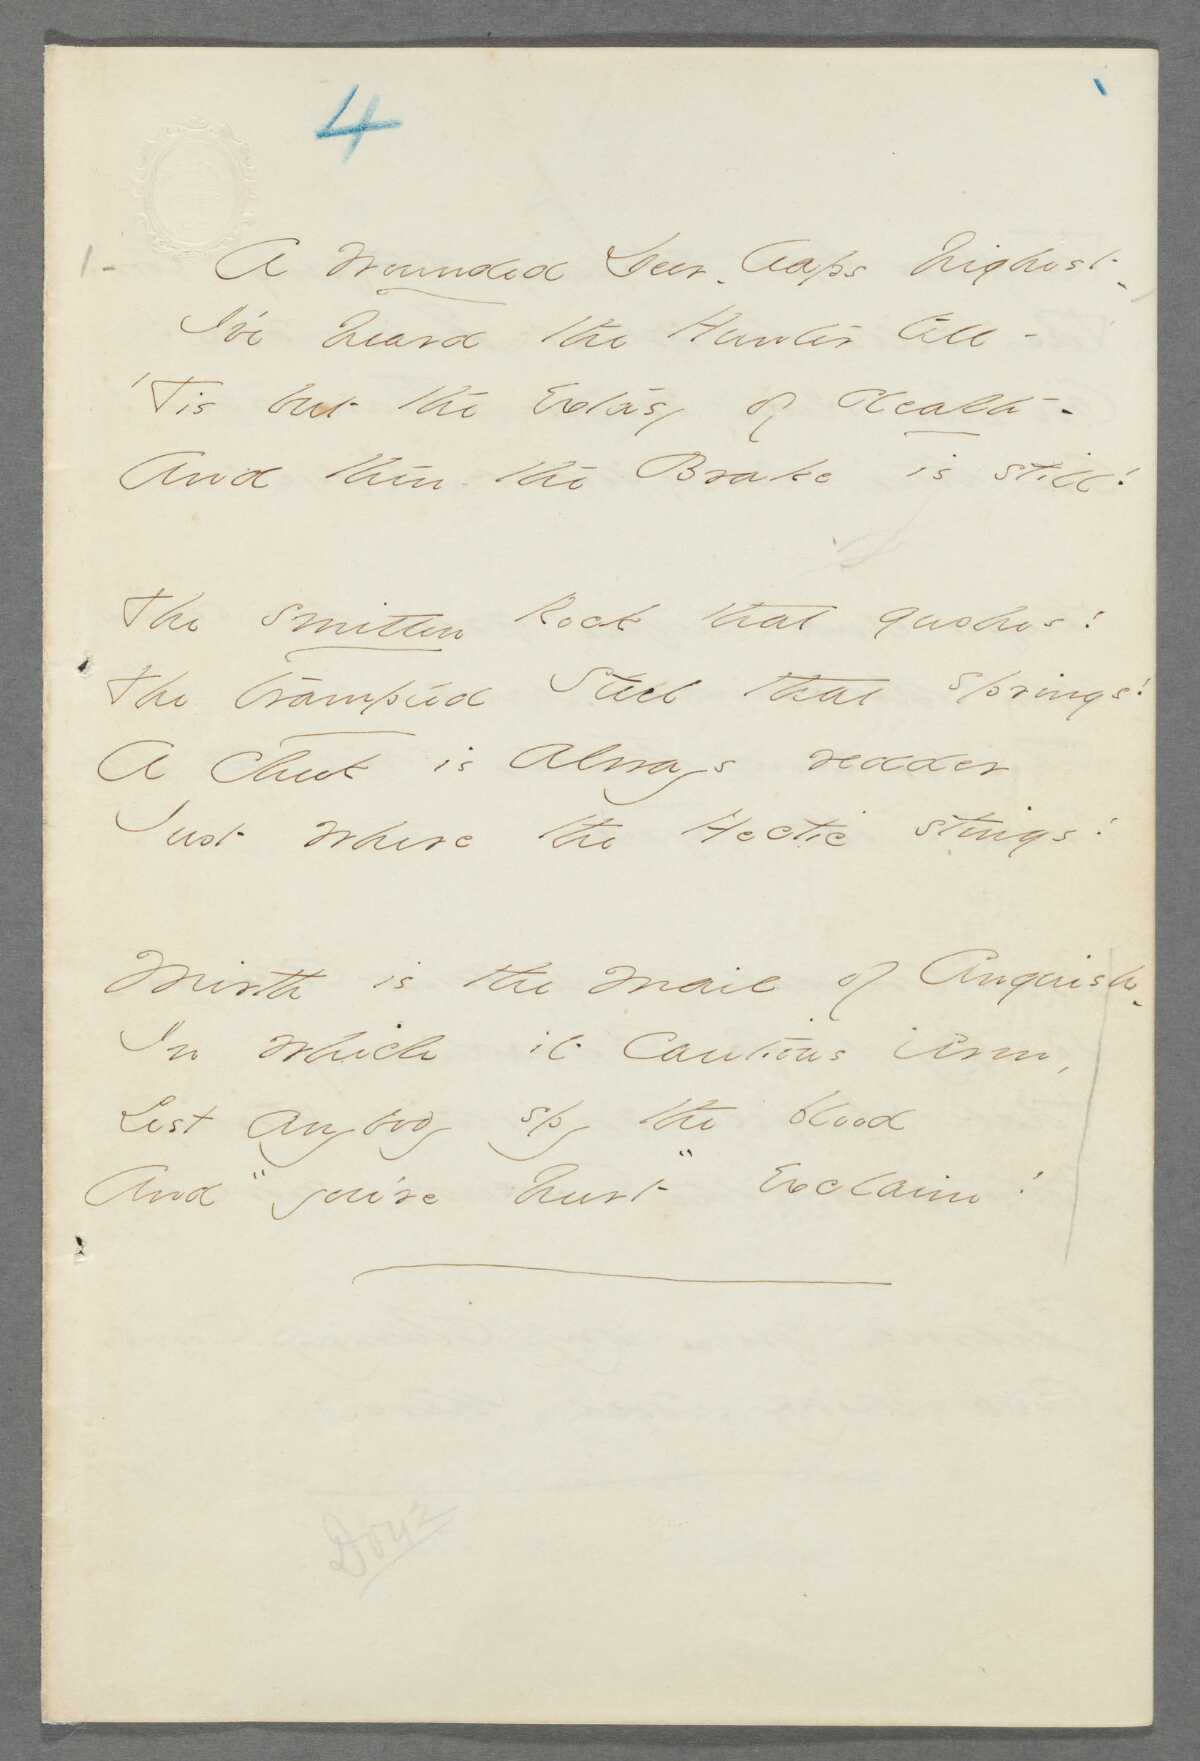 4
1-
A wounded Deer - leaps highest -
I've heard the Hunter tell -
'Tis but the Extasy of death -
And then the Brake is still!
The smitten Rock that gushes!
The trampled Steel that springs!
A Cheek is always redder
Just where the Hectic stings!
Mirth is the Mail of Anguish -
In which it Cautious Arm,
Lest anybody spy the blood
And "you're hurt" exclaim!